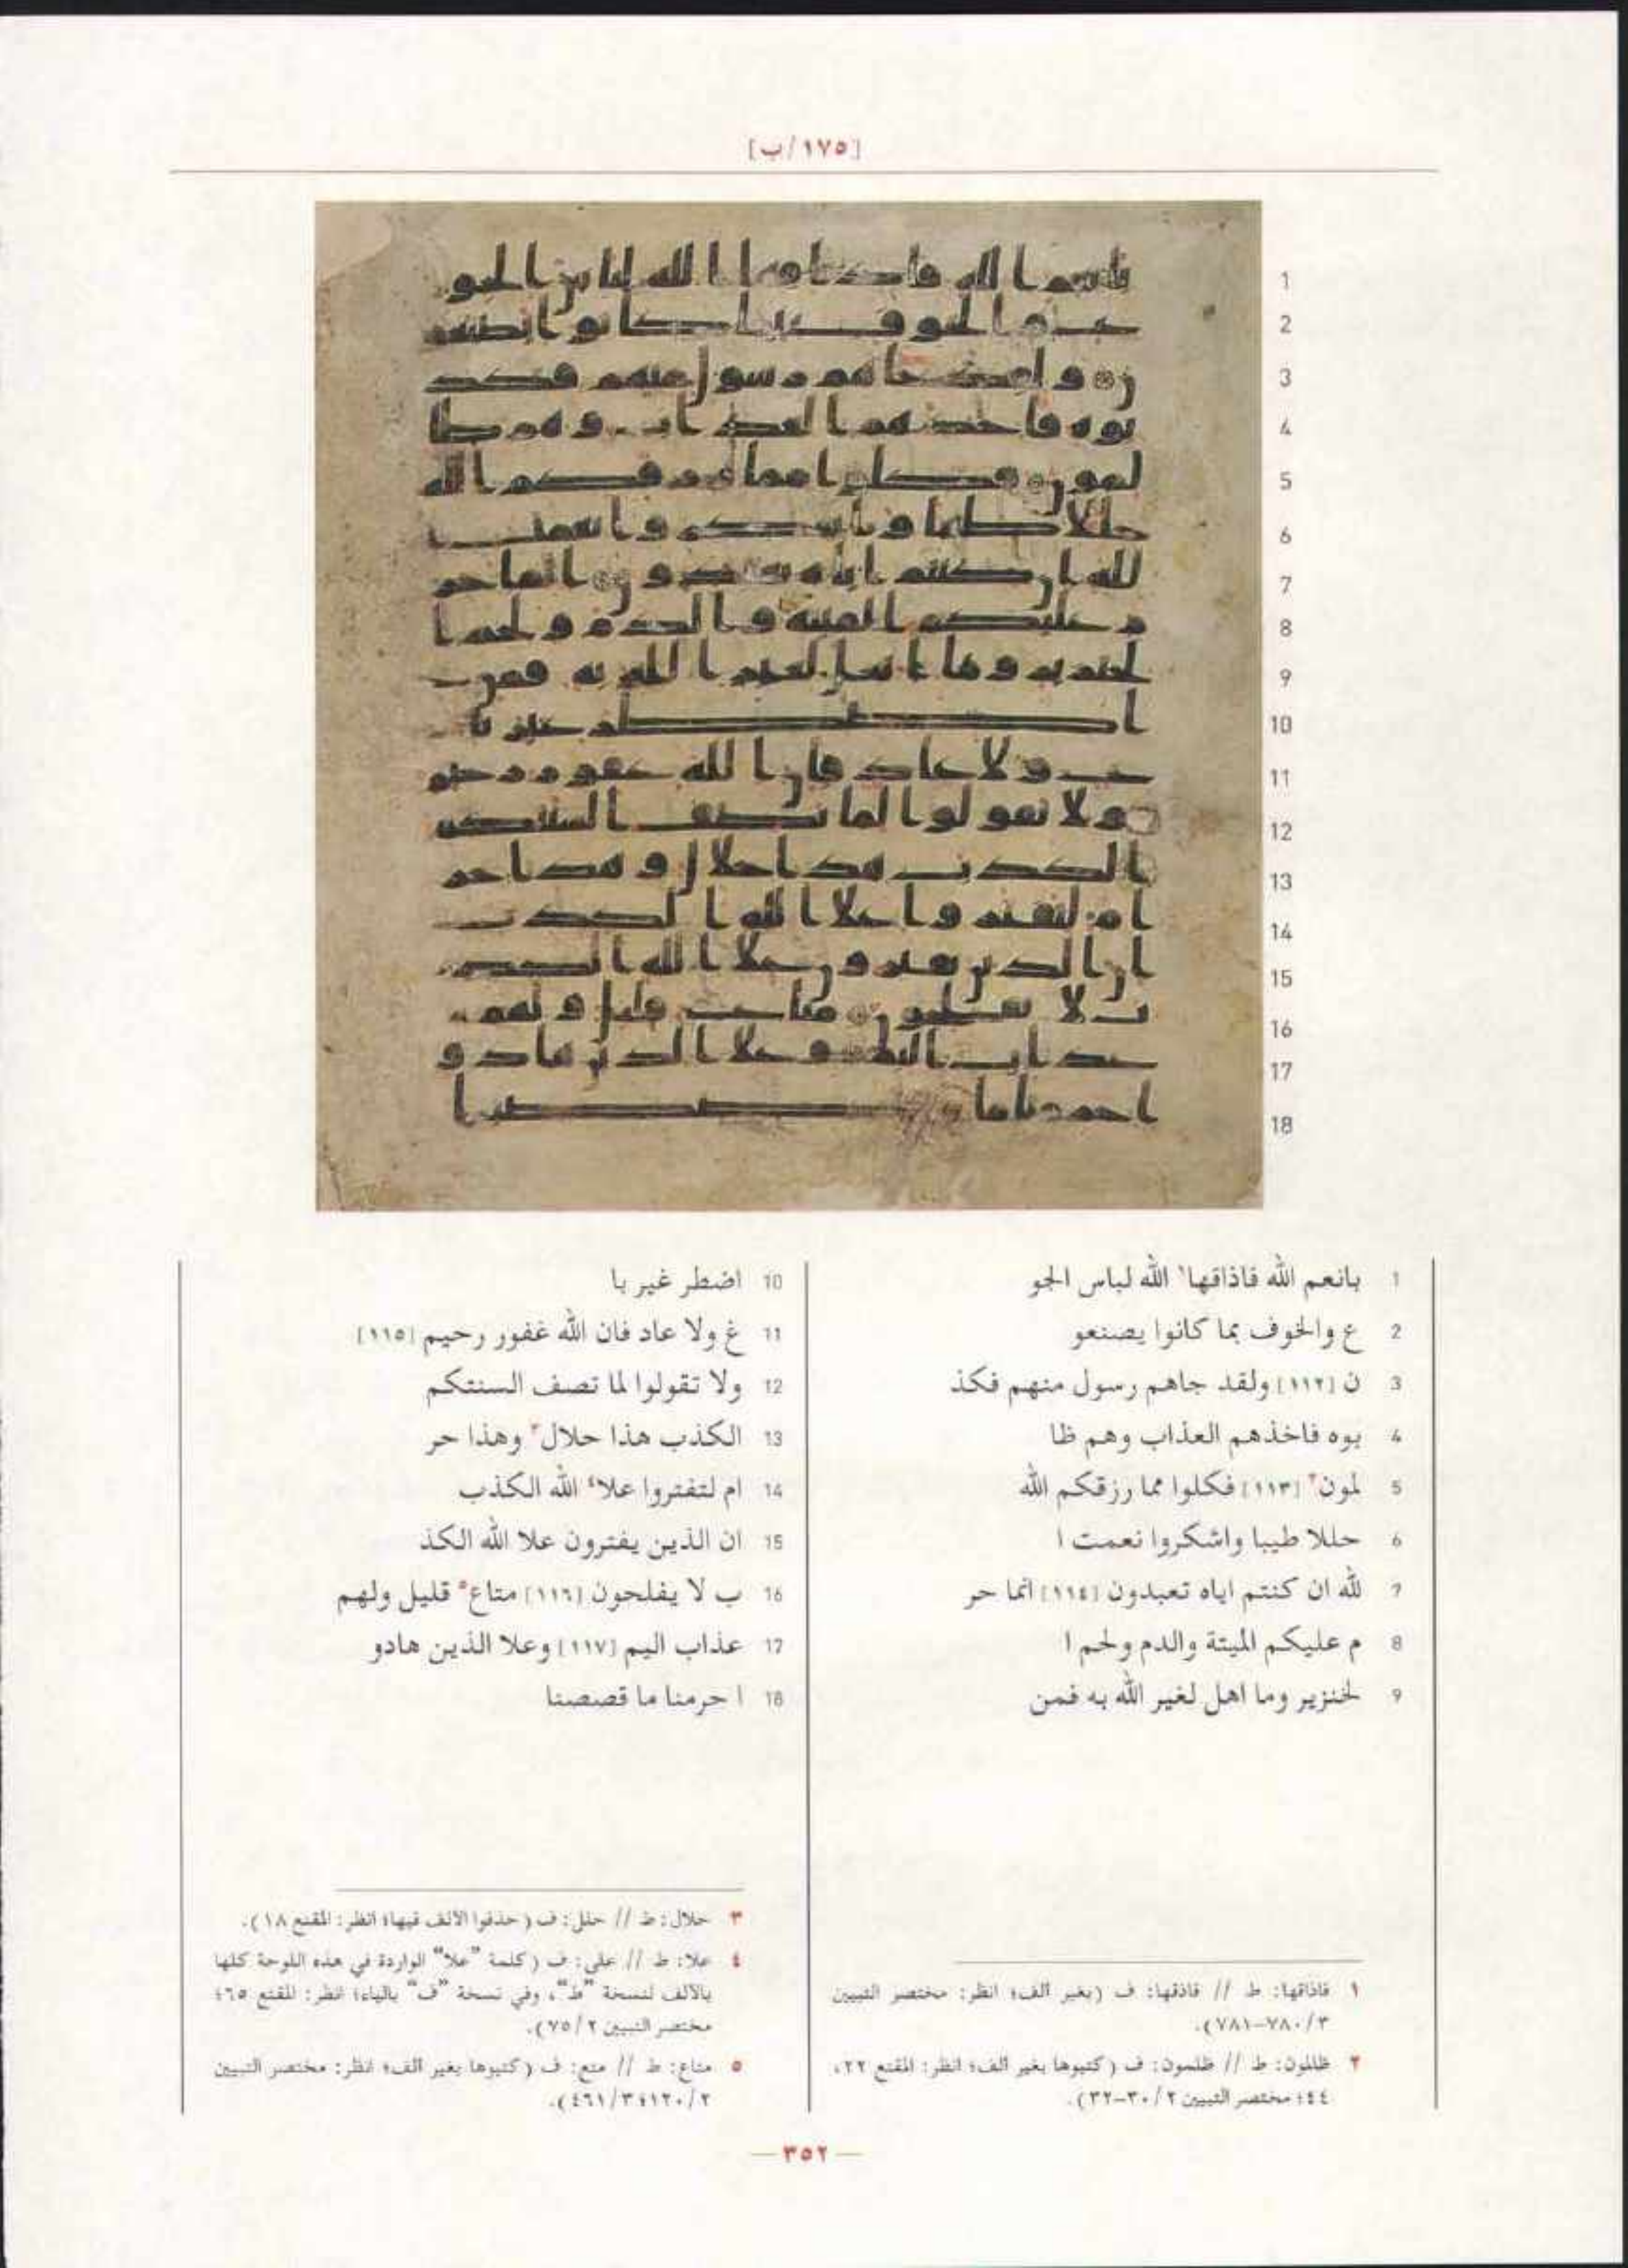 [١٧٥/ب]
1 بانعم الله فاذاقها١ الله لباس الجو
2 ع والخوف بما كانوا يصنعو
3 ن [١١٢] ولقد جاهم رسول منهم فكذ
4 بوه فاخذهم العذاب وهم ظا
5 لمون٢ [١١٣] فكلوا مما رزقكم الله
6 حللا طيبا واشكروا نعمت ا
7 لله ان كنتم اياه تعبدون [١١٤] انما حر
8 م عليكم الميتة والدم ولحم ا
9 لخنزير وما اهل لغير الله به فمن
10 اضطر غير با
11 غ ولا عاد فان الله غفور رحيم [١١٥]
12 ولا تقولوا لما تصف السنتكم
13 الكذب هذا حلال٣ وهذا حر
14 ام لتفتروا علا٤ الله الكذب
15 ان الذين يفترون علا الله الكذ
16 ب لا يفلحون [١١٦] متاع٥ قليل ولهم
17 عذاب اليم [١١٧] وعلا الذين هادو
18 ا حرمنا ما قصصنا
١ فاذاقها: ط // فاذقها: ف (بغير ألف؛ انظر: مختصر التبيين
٣/٧٨٠–٧٨١).
٢ ظالمون: ط // ظلمون: ف (كتبوها بغير ألف؛ انظر: المقنع ٢٢،
٤٤؛ مختصر التبيين ٢/٣٠–٣٢).
٣ حلال: ط // حلل: ف (حذفوا الالف فيها؛ انظر: المقنع ١٨).
٤ علا: ط // على: ف (كلمة "علا" الواردة في هذه اللوحة كلها
بالألف لنسخة "ط"، وفي نسخة "ف" بالياء؛ انظر: المقنع ٦٥؛
مختصر التبيين ٢/٧٥).
٥ متاع: ط // متع: ف (كتبوها بغير ألف؛ انظر: مختصر التبيين
٢/١٢٠؛ ٣/٤٦١).
— ٣٥٢ —